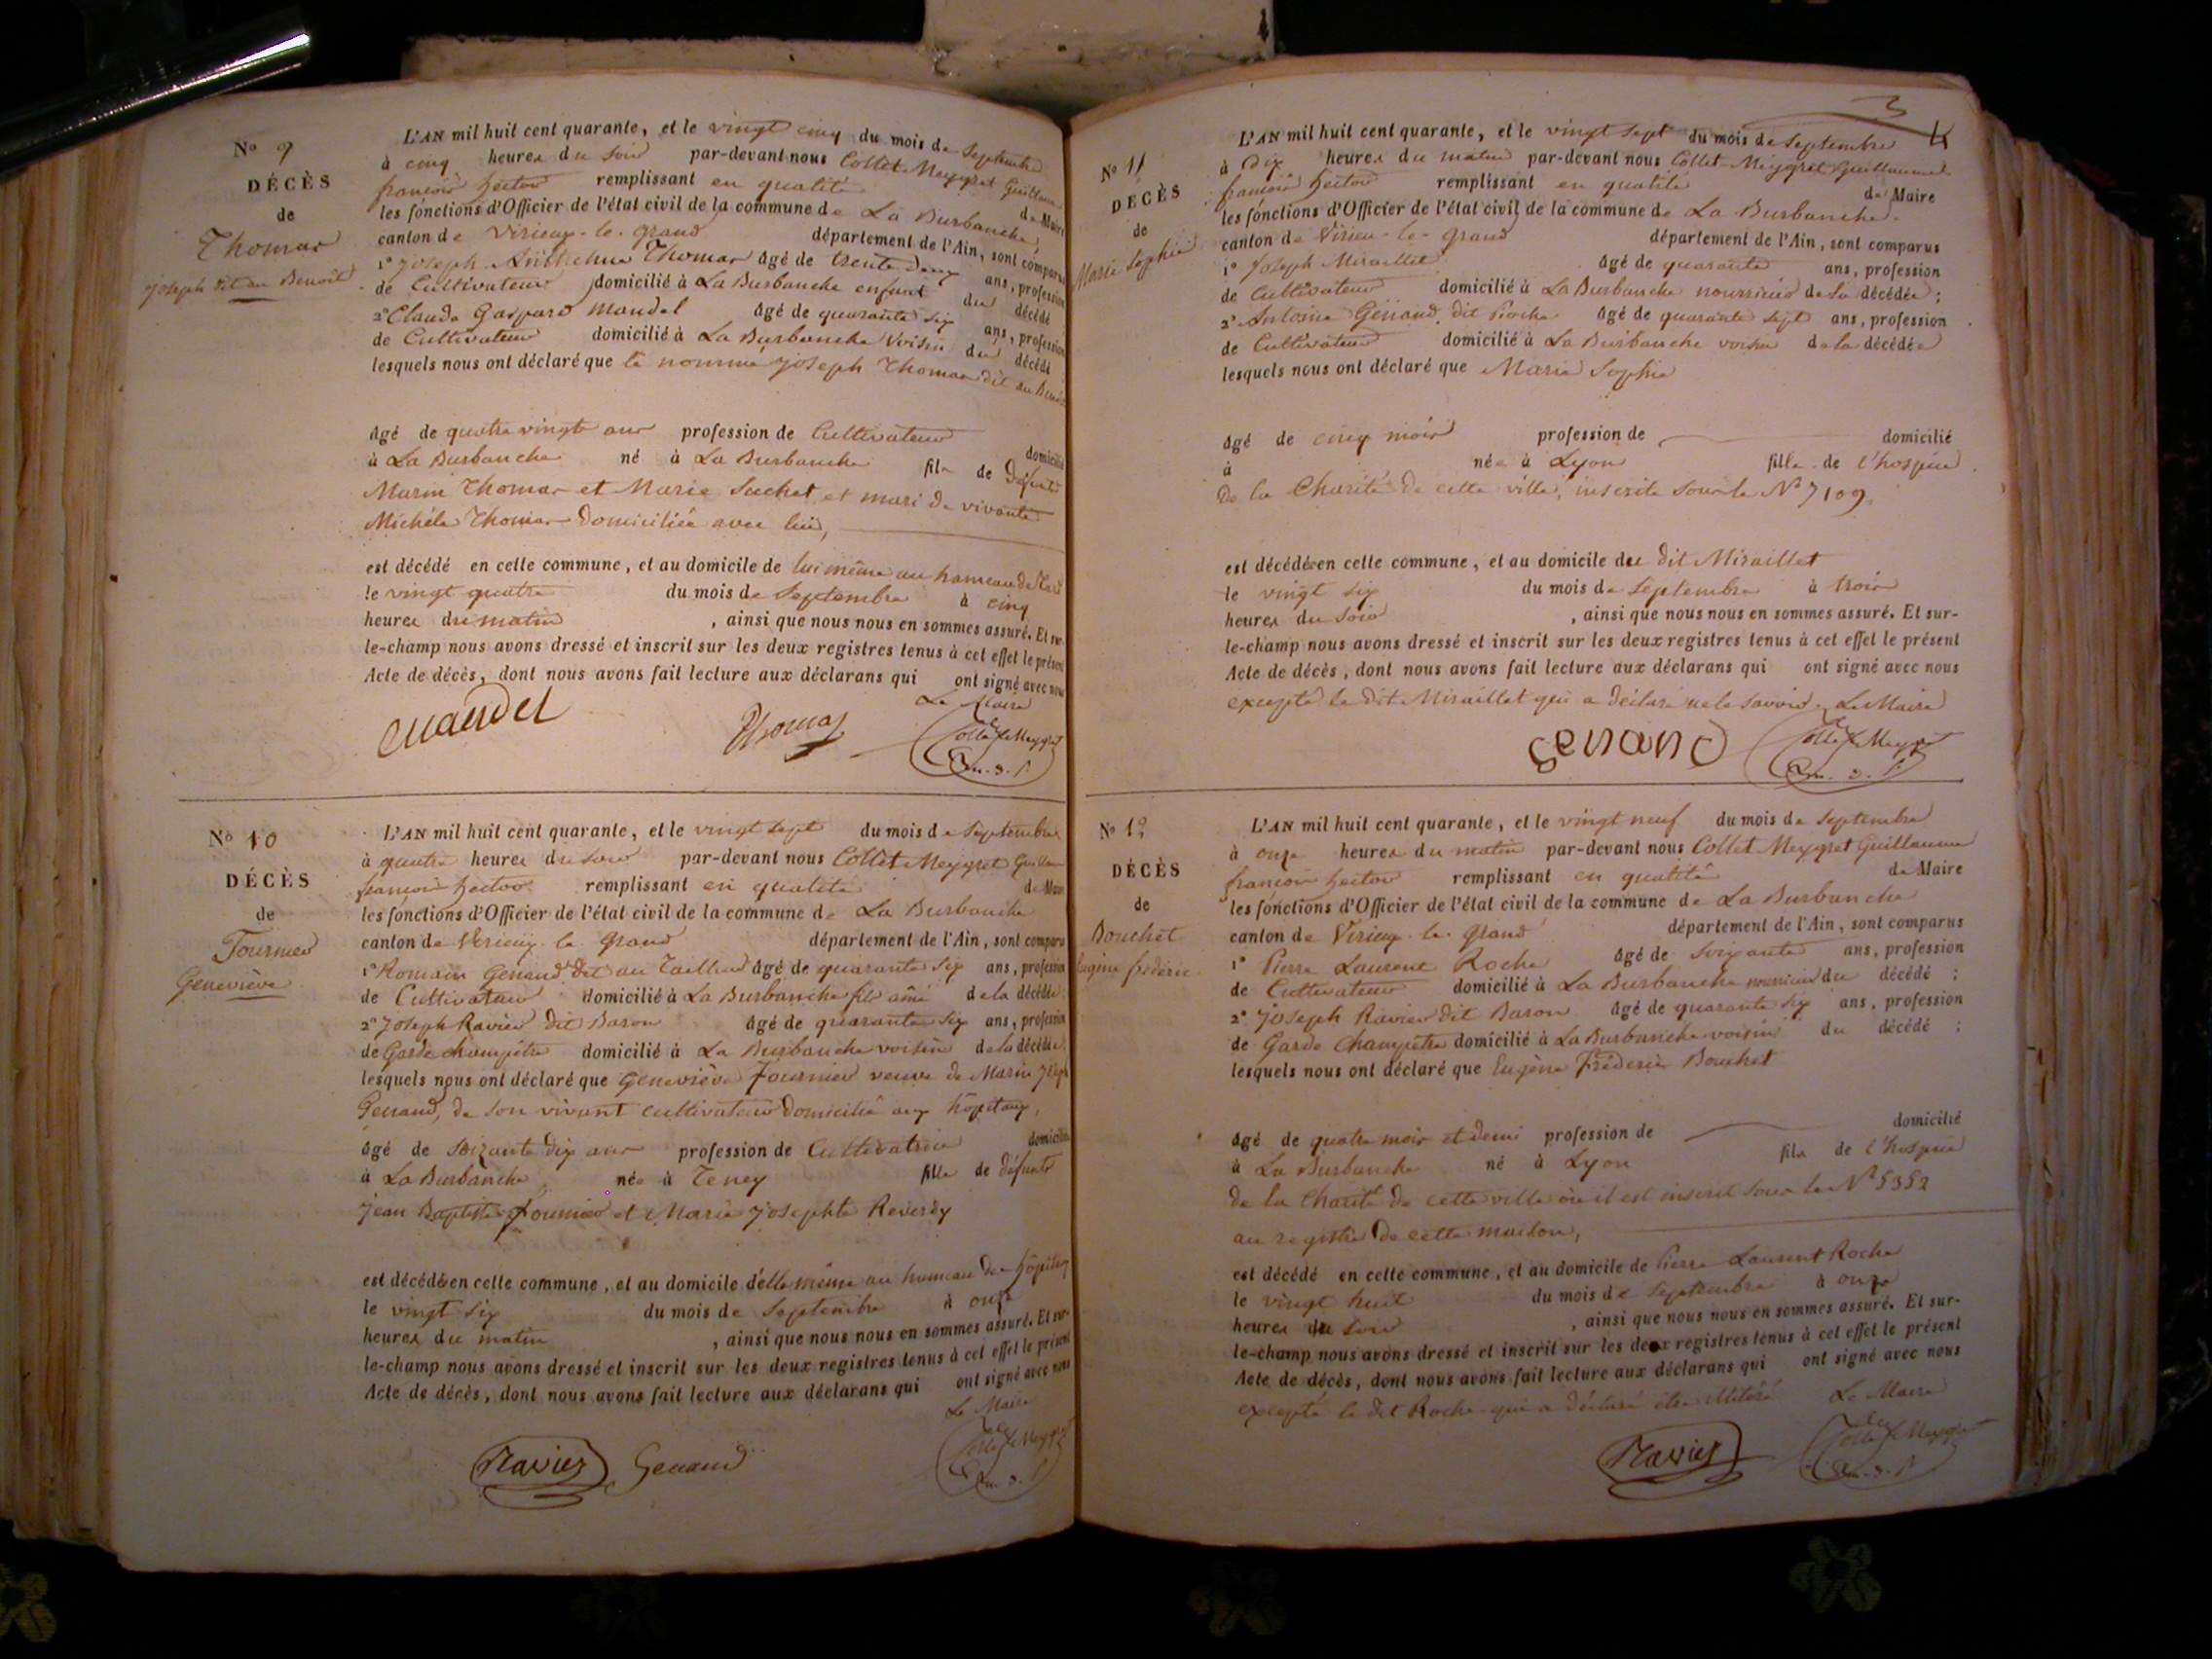 No 9
DÉCÈS
de
Thomas
joseph dit au Benoit
L'AN mil huit cent quarante, et le vingt cinq du mois de Septembre
à cinq heures du soir par-devant nous Collet Meygret Guillaume
françois hector remplissant en qualité de Maire
les fonctions d'Officier de l'état civil de la commune de La Burbanche,
canton de Virieux-le-grand département de l'Ain, sont comparus
1° Joseph Anthelme Thomas âgé de trente deux ans, profession
de Cultivateur domicilié à La Burbanche enfant du décédé
2° Claude Gaspard Mandel âgé de quarante six ans, profession
de Cultivateur domicilié à La Burbanche Voisin du décédé
lesquels nous ont déclaré que le nommé joseph Thomas dit au Benoit
âgé de quatre vingts ans profession de Cultivateur domicilié
à La Burbanche né à La Burbanche fils de Défunts
Marin Thomas et Marie Suchet et mari de vivante
Michèle Thomas domiciliée avec lui,
est décédé en cette commune, et au domicile de lui même au hameau de
le vingt quatre du mois de Septembre à cinq
heures du matin , ainsi que nous nous en sommes assuré. Et sur-
le-champ nous avons dressé et inscrit sur les deux registres tenus à cet effet le présent
Acte de décès, dont nous avons fait lecture aux déclarans qui ont signé avec nous
Le Maire
Mandel Thomas Collet Meygret
No 10
DÉCÈS
de
Fournier
Geneviève
L'AN mil huit cent quarante, et le vingt sept du mois de Septembre
à quatre heures du soir par-devant nous Collet Meygret Guillaume
françois hector remplissant en qualité de Maire
les fonctions d'Officier de l'état civil de la commune de La Burbanche
canton de Virieux le Grand département de l'Ain, sont comparus
1° Romain Genand dit au Tailleur âgé de quarante six ans, profession
de Cultivateur domicilié à La Burbanche fils aîné de la décédée
2° Joseph Ravier dit Baron âgé de quarante six ans, profession
de Garde champêtre domicilié à La Burbanche voisin de la décédée
lesquels nous ont déclaré que Geneviève Fournier veuve de Marin Joseph
Genand, de son vivant cultivateur domicilié aux hôpitaux,
âgé de soixante dix ans profession de Cultivatrice domicilié
à La Burbanche, née à Teney fille de défunts
Jean Baptiste Fournier et Marie Josephte Reverdy
est décédée en cette commune, et au domicile d'elle même au hameau des hôpitaux
le vingt six du mois de Septembre à onze
heures du matin , ainsi que nous nous en sommes assuré. Et sur-
le-champ nous avons dressé et inscrit sur les deux registres tenus à cet effet le présent
Acte de décès, dont nous avons fait lecture aux déclarans qui ont signé avec nous
Le Maire
Ravier Genand Collet Meygret
No 11
DÉCÈS
de
Marie Sophie
L'AN mil huit cent quarante, et le vingt sept du mois de Septembre
à Dix heures du matin par-devant nous Collet Meygret Guillaume
françois hector remplissant en qualité de Maire
les fonctions d'Officier de l'état civil de la commune de La Burbanche.
canton de Virieu-le-grand département de l'Ain, sont comparus
1° Joseph Miraillet âgé de quarante ans, profession
de Cultivateur domicilié à La Burbanche nourricier de la décédée;
2° Antoine Genand, dit Pioche âgé de quarante sept ans, profession
de Cultivateur domicilié à La Burbanche voisin de la décédée
lesquels nous ont déclaré que Marie Sophie
âgé de cinq mois profession de domicilié
à née à Lyon fille de l'hospice
De la Charité de cette ville, inscrite sous le No 7109.
est décédée en cette commune, et au domicile du dit Miraillet
le vingt six du mois de Septembre à trois
heures du soir , ainsi que nous nous en sommes assuré. Et sur-
le-champ nous avons dressé et inscrit sur les deux registres tenus à cet effet le présent
Acte de décès, dont nous avons fait lecture aux déclarans qui ont signé avec nous
excepté le dit Miraillet qui a déclaré ne le savoir. Le Maire
Genand Collet Meygret
No 12
DÉCÈS
de
Bouchet
Eugène frédéric
L'AN mil huit cent quarante, et le vingt neuf du mois de Septembre
à onze heures du matin par-devant nous Collet Meygret Guillaume
françois hector remplissant en qualité de Maire
les fonctions d'Officier de l'état civil de la commune de La Burbanche
canton de Virieux-le-grand département de l'Ain, sont comparus
1° Pierre Laurent Roche âgé de soixante ans, profession
de Cultivateur domicilié à La Burbanche nourricier du décédé;
2° Joseph Ravier dit Baron âgé de quarante six ans, profession
de Garde Champêtre domicilié à La Burbanche voisin du décédé;
lesquels nous ont déclaré que Eugène Frédéric Bouchet
âgé de quatre mois et demi profession de domicilié
à La Burbanche né à Lyon fils de l'hospice
de la Charité de cette ville où il est inscrit sous le No 5352
au registre de cette maison,
est décédé en cette commune, et au domicile de Pierre Laurent Roche
le vingt huit du mois de Septembre à onze
heures du soir , ainsi que nous nous en sommes assuré. Et sur-
le-champ nous avons dressé et inscrit sur les deux registres tenus à cet effet le présent
Acte de décès, dont nous avons fait lecture aux déclarans qui ont signé avec nous
excepté le dit Roche qui a déclaré être illitéré Le Maire
Ravier Collet Meygret